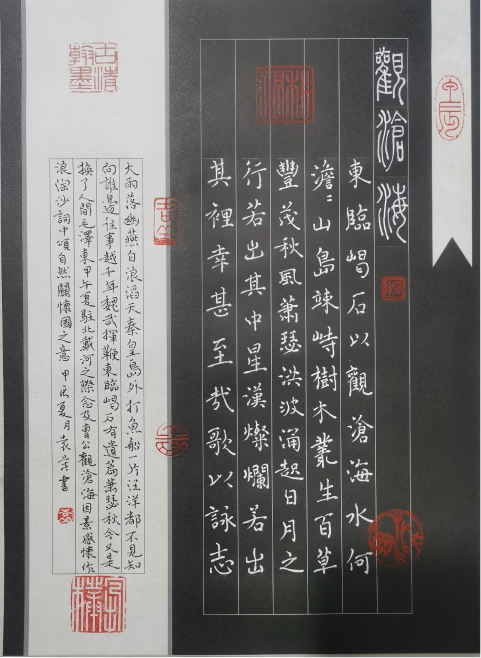 觀滄海
東臨碣石以觀滄海水何
澹〻山島竦峙樹木叢生百草
豐茂秋風蕭瑟洪波涌起日月之
行若出其中星漢燦爛若出
其裡幸甚至哉歌以詠志
大雨落幽燕白浪滔天秦皇島外打魚船一片汪洋都不見知
向誰邊往事越千年魏武揮鞭東臨碣石有遺篇蕭瑟秋今又是
換了人間毛澤東甲午夏駐北戴河之際念及曹公觀滄海因景感懷作
浪淘沙詞中頌自然關懷國之意甲辰夏月袁書